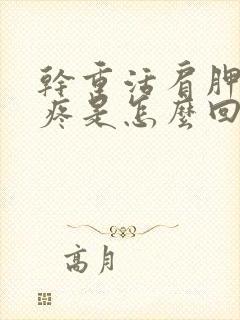 幹重活肩胛
疼是怎麼回
高月